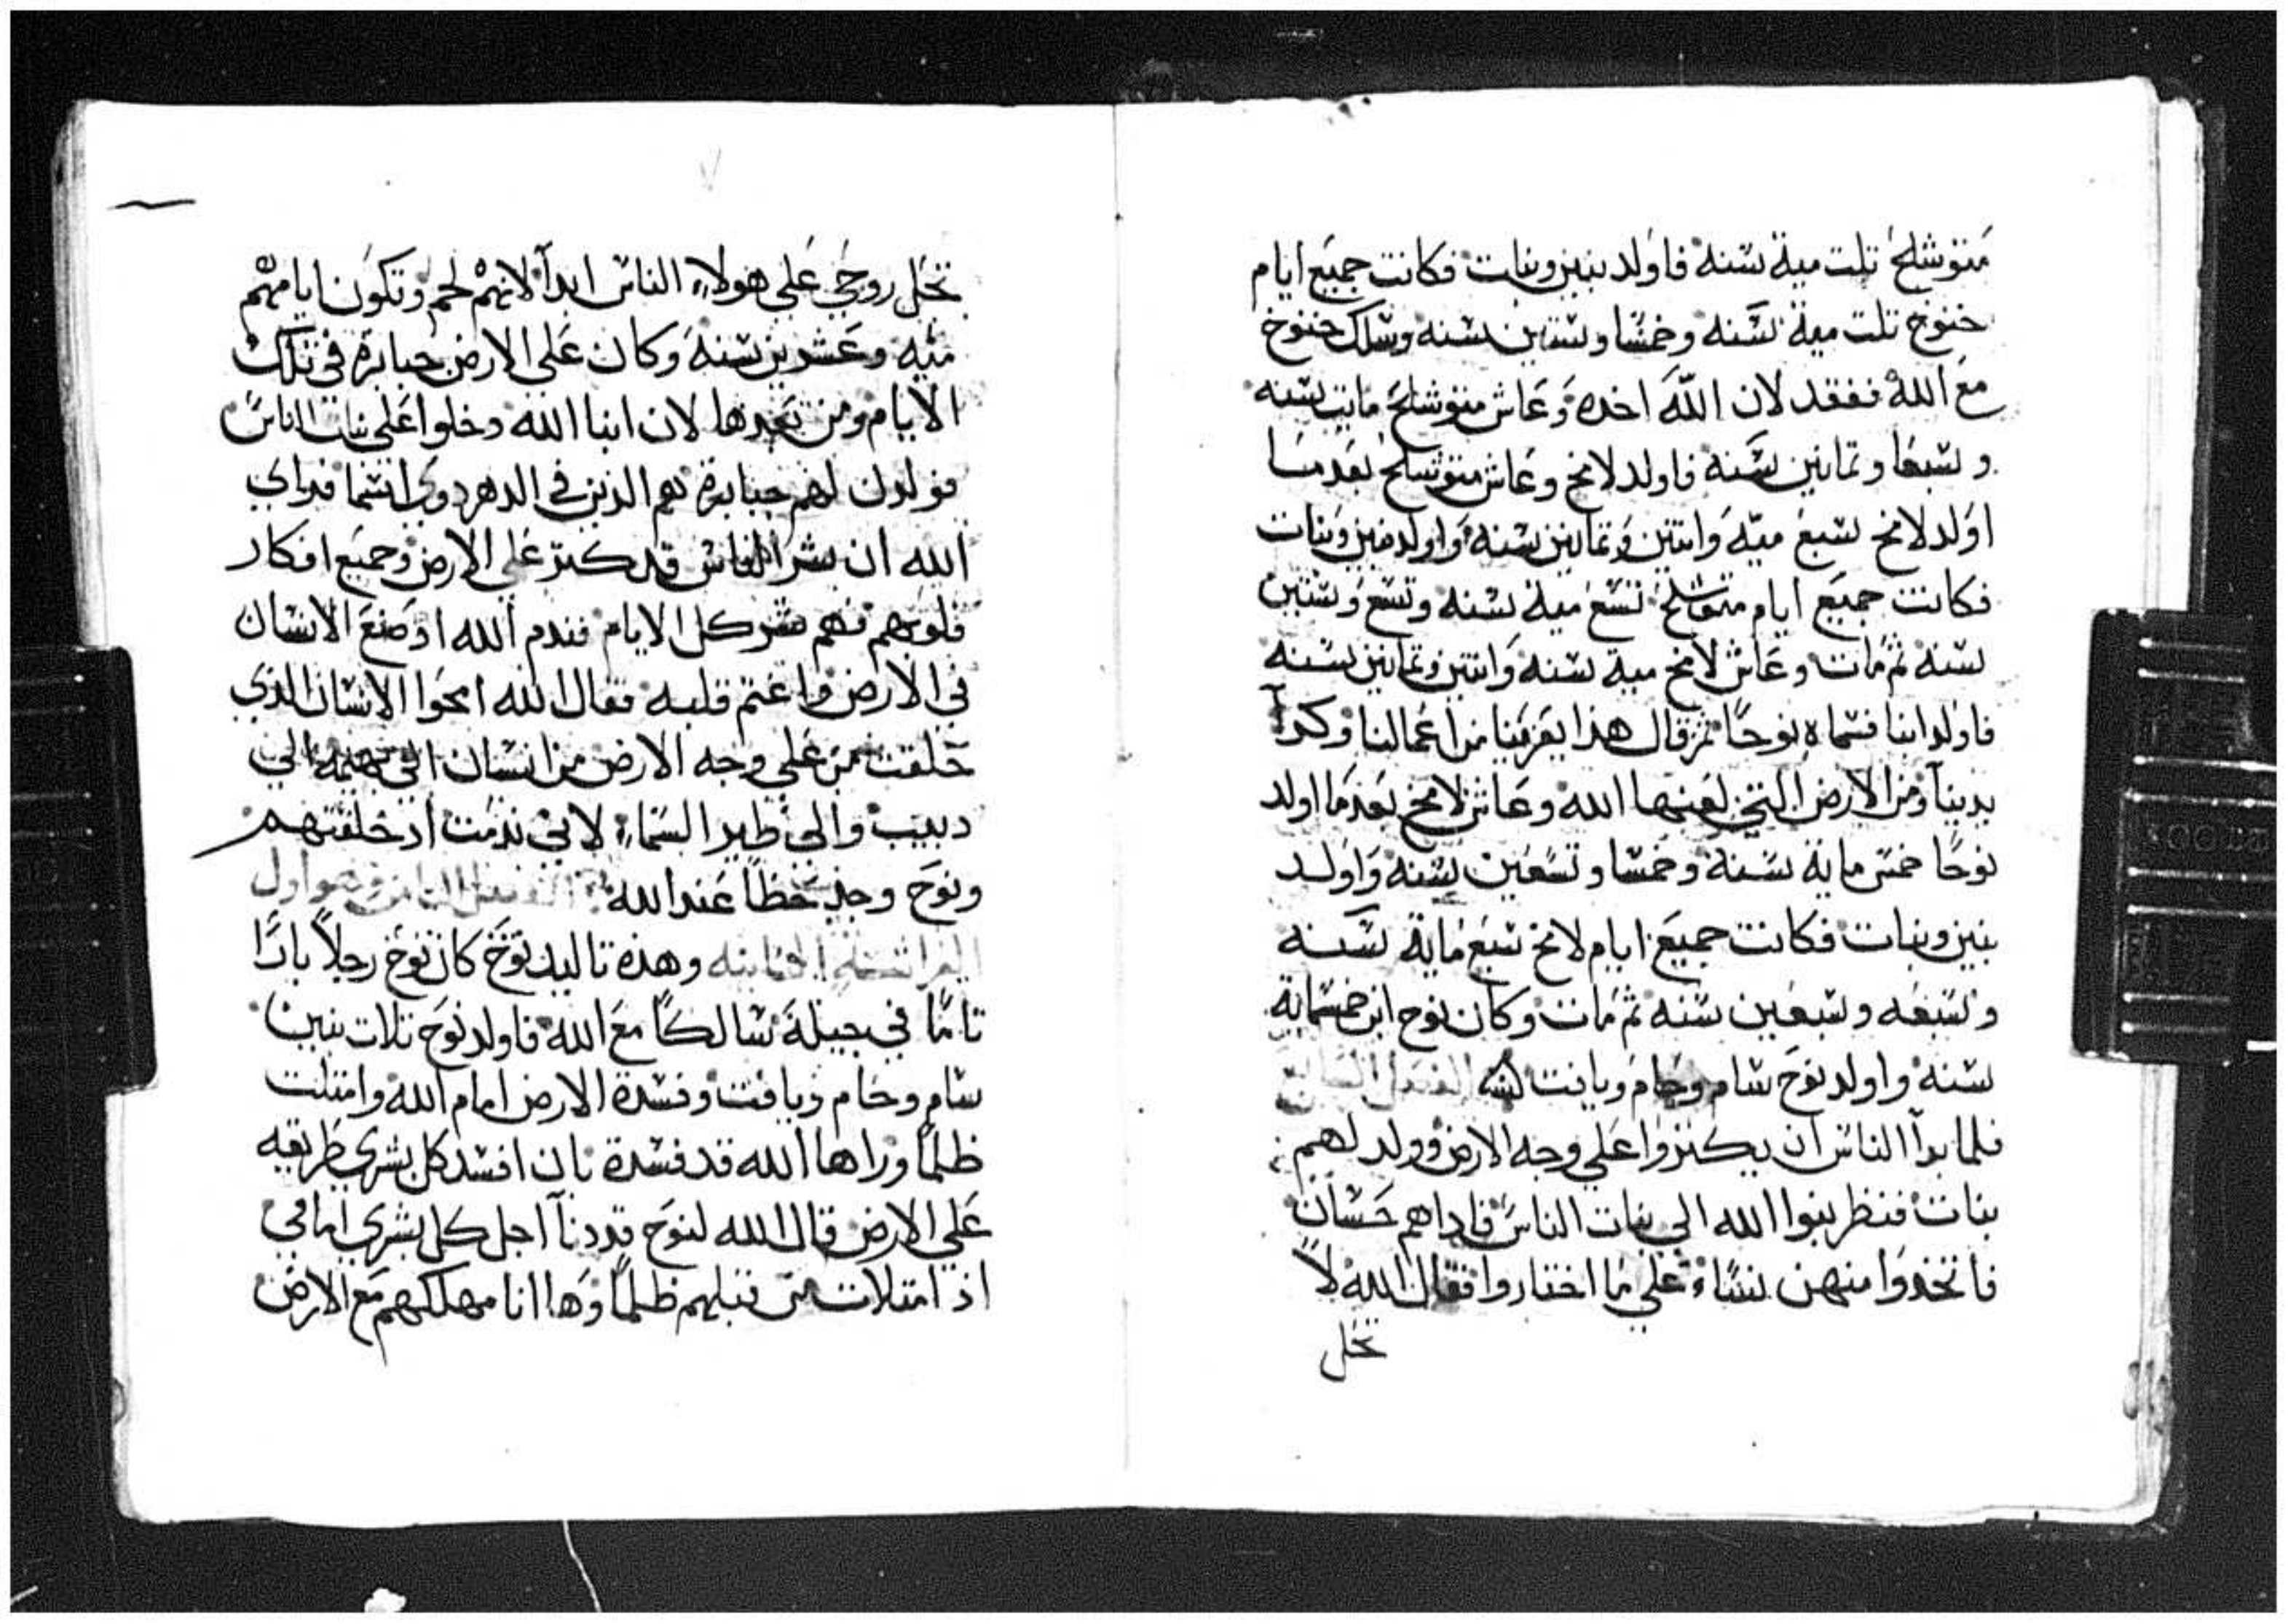 متوشلح تلت مية سنه فاولد بنين وبنات فكانت جميع ايام
خنوخ تلت مية سنه وخمسا وستين سنه وسلك خنوخ
مع الله ففقد لان الله اخده وعاش متوشلح مايت سنه
وسبعا وتمانين سنه فاولد لامخ وعاش متوشلح بعد مسا
اولد لامخ سبع ميه واتنين وتمانين سنه واولد بنين وبنات
فكانت جميع ايام متوشلح تسع مية سنه وتسع وستين
سنه تم مات وعاش لامخ مية سنه واتنين وتمانين سنه
فاولد ابنا فسماه نوحا تم قال هذا يعزينا من اعمالنا وكدا
يدينا ومن الارض التي لعنها الله وعاش لامخ بعد ما اولد
نوحا خمس ماية سنه وخمسا وتسعين سنه واولد
بنين وبنات فكانت جميع ايام لامخ سبع ماية سنه
وسبعه وسبعين سنه تم مات وكان نوح ابن خمسماية
سنه واولد نوح سام وحام ويافت الفصل السابع
فلما بدا الناس ان يكتروا علي وجه الارض وولد لهم
بنات فنظر بنوا الله الي بنات الناس فاداهم حسان
فاتخدوا منهن نساء علي ما اختاروا فقال الله لا
تحل
٧
تحل روحي علي هولاء الناس ابدا لانهم لحم وتكون ايامهم
ميه وعشرين سنه وكان علي الارض جبابرة في تلك
الايام ومن بعدها لان ابنا الله دخلوا علي بنات الناس
فولدن لهم جبابرة هم الدين في الدهر دوي اسما فراي
الله ان شر الناس قد كتر علي الارض وجميع افكار
قلوبهم فهم بشر كل الايام فندم الله اد صنع الانسان
في الارض واغتم قلبه فقال الله امحوا الانسان الدي
خلقت من علي وجه الارض من انسان الي بهيمة الي
دبيب والي طير السماء لاني ندمت اد خلقتهم
ونوح وجد حظا عند الله الفصل التامن وهو اول
القراة التانيه وهذه تاليد نوح كان نوح رجلا بارا
تاما في جيله سالكا مع الله فاولد نوح تلات بنين
سام وحام ويافت وفسدة الارض امام الله وامتلت
ظلما وراها الله قد فسدة بان افسد كل بشري طريقه
علي الارض قال الله لنوح قد دنا اجل كل بشري امامي
اد امتلات من قبلهم ظلما وها انا مهلكهم مع الارض